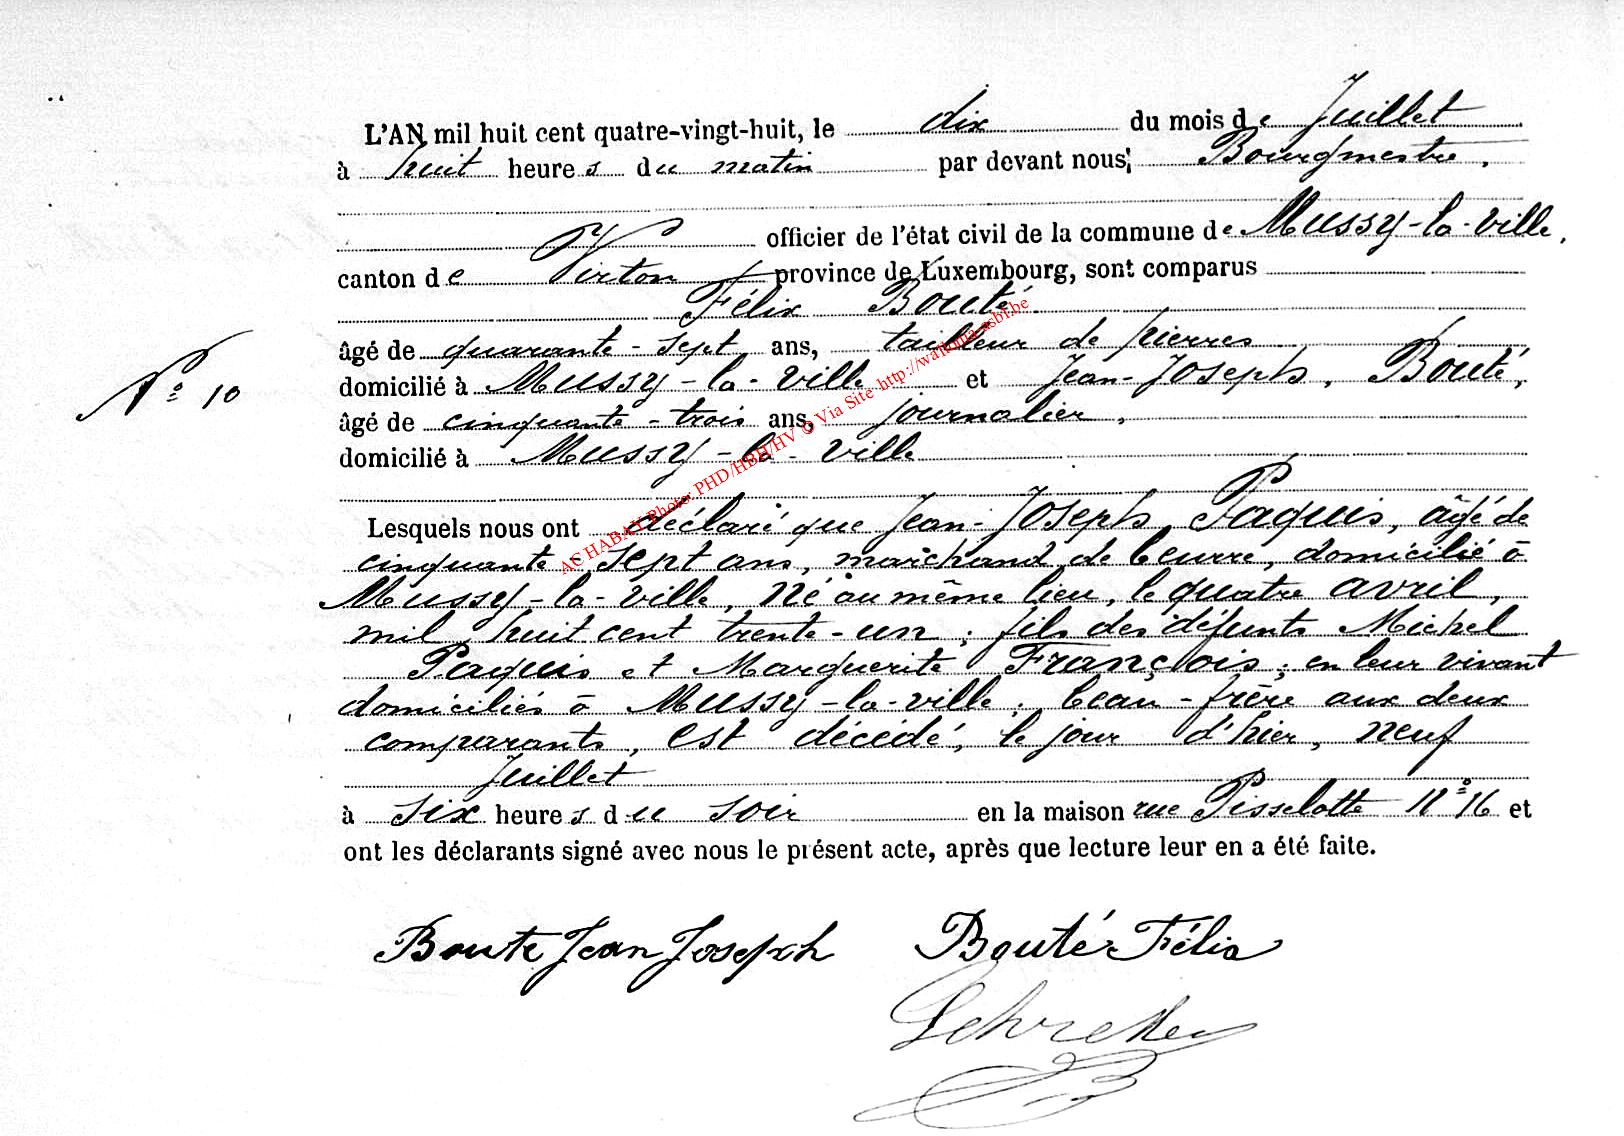 L'AN mil huit cent quatre-vingt-huit, le dix du mois de Juillet
à huit heures du matin par devant nous, Bourgmestre,
officier de l'état civil de la commune de Mussy-la-ville,
canton de Virton province de Luxembourg, sont comparus
Félix Bouté
âgé de quarante-sept ans, tailleur de pierres
domicilié à Mussy-la-ville et Jean-Joseph, Bouté,
N° 10
âgé de cinquante-trois ans, journalier,
domicilié à Mussy-la-ville
Lesquels nous ont déclaré que Jean-Joseph Paquis, âgé de
cinquante sept ans, marchand de beurre, domicilié à
Mussy-la-ville, né au même lieu, le quatre avril,
mil huit cent trente-un, fils des défunts Michel
Paquis et Marguerite François, en leur vivant
domiciliés à Mussy-la-ville, beau-frère aux deux
comparants, est décédé, le jour d'hier, neuf
Juillet
à six heures du soir en la maison rue Pisselotte n° 16 et
ont les déclarants signé avec nous le présent acte, après que lecture leur en a été faite.
Boute Jean Joseph Bouté Félix
AC HABAY Photo: PHD/HBH/HV © Via Site http://wallonia-asbl.be